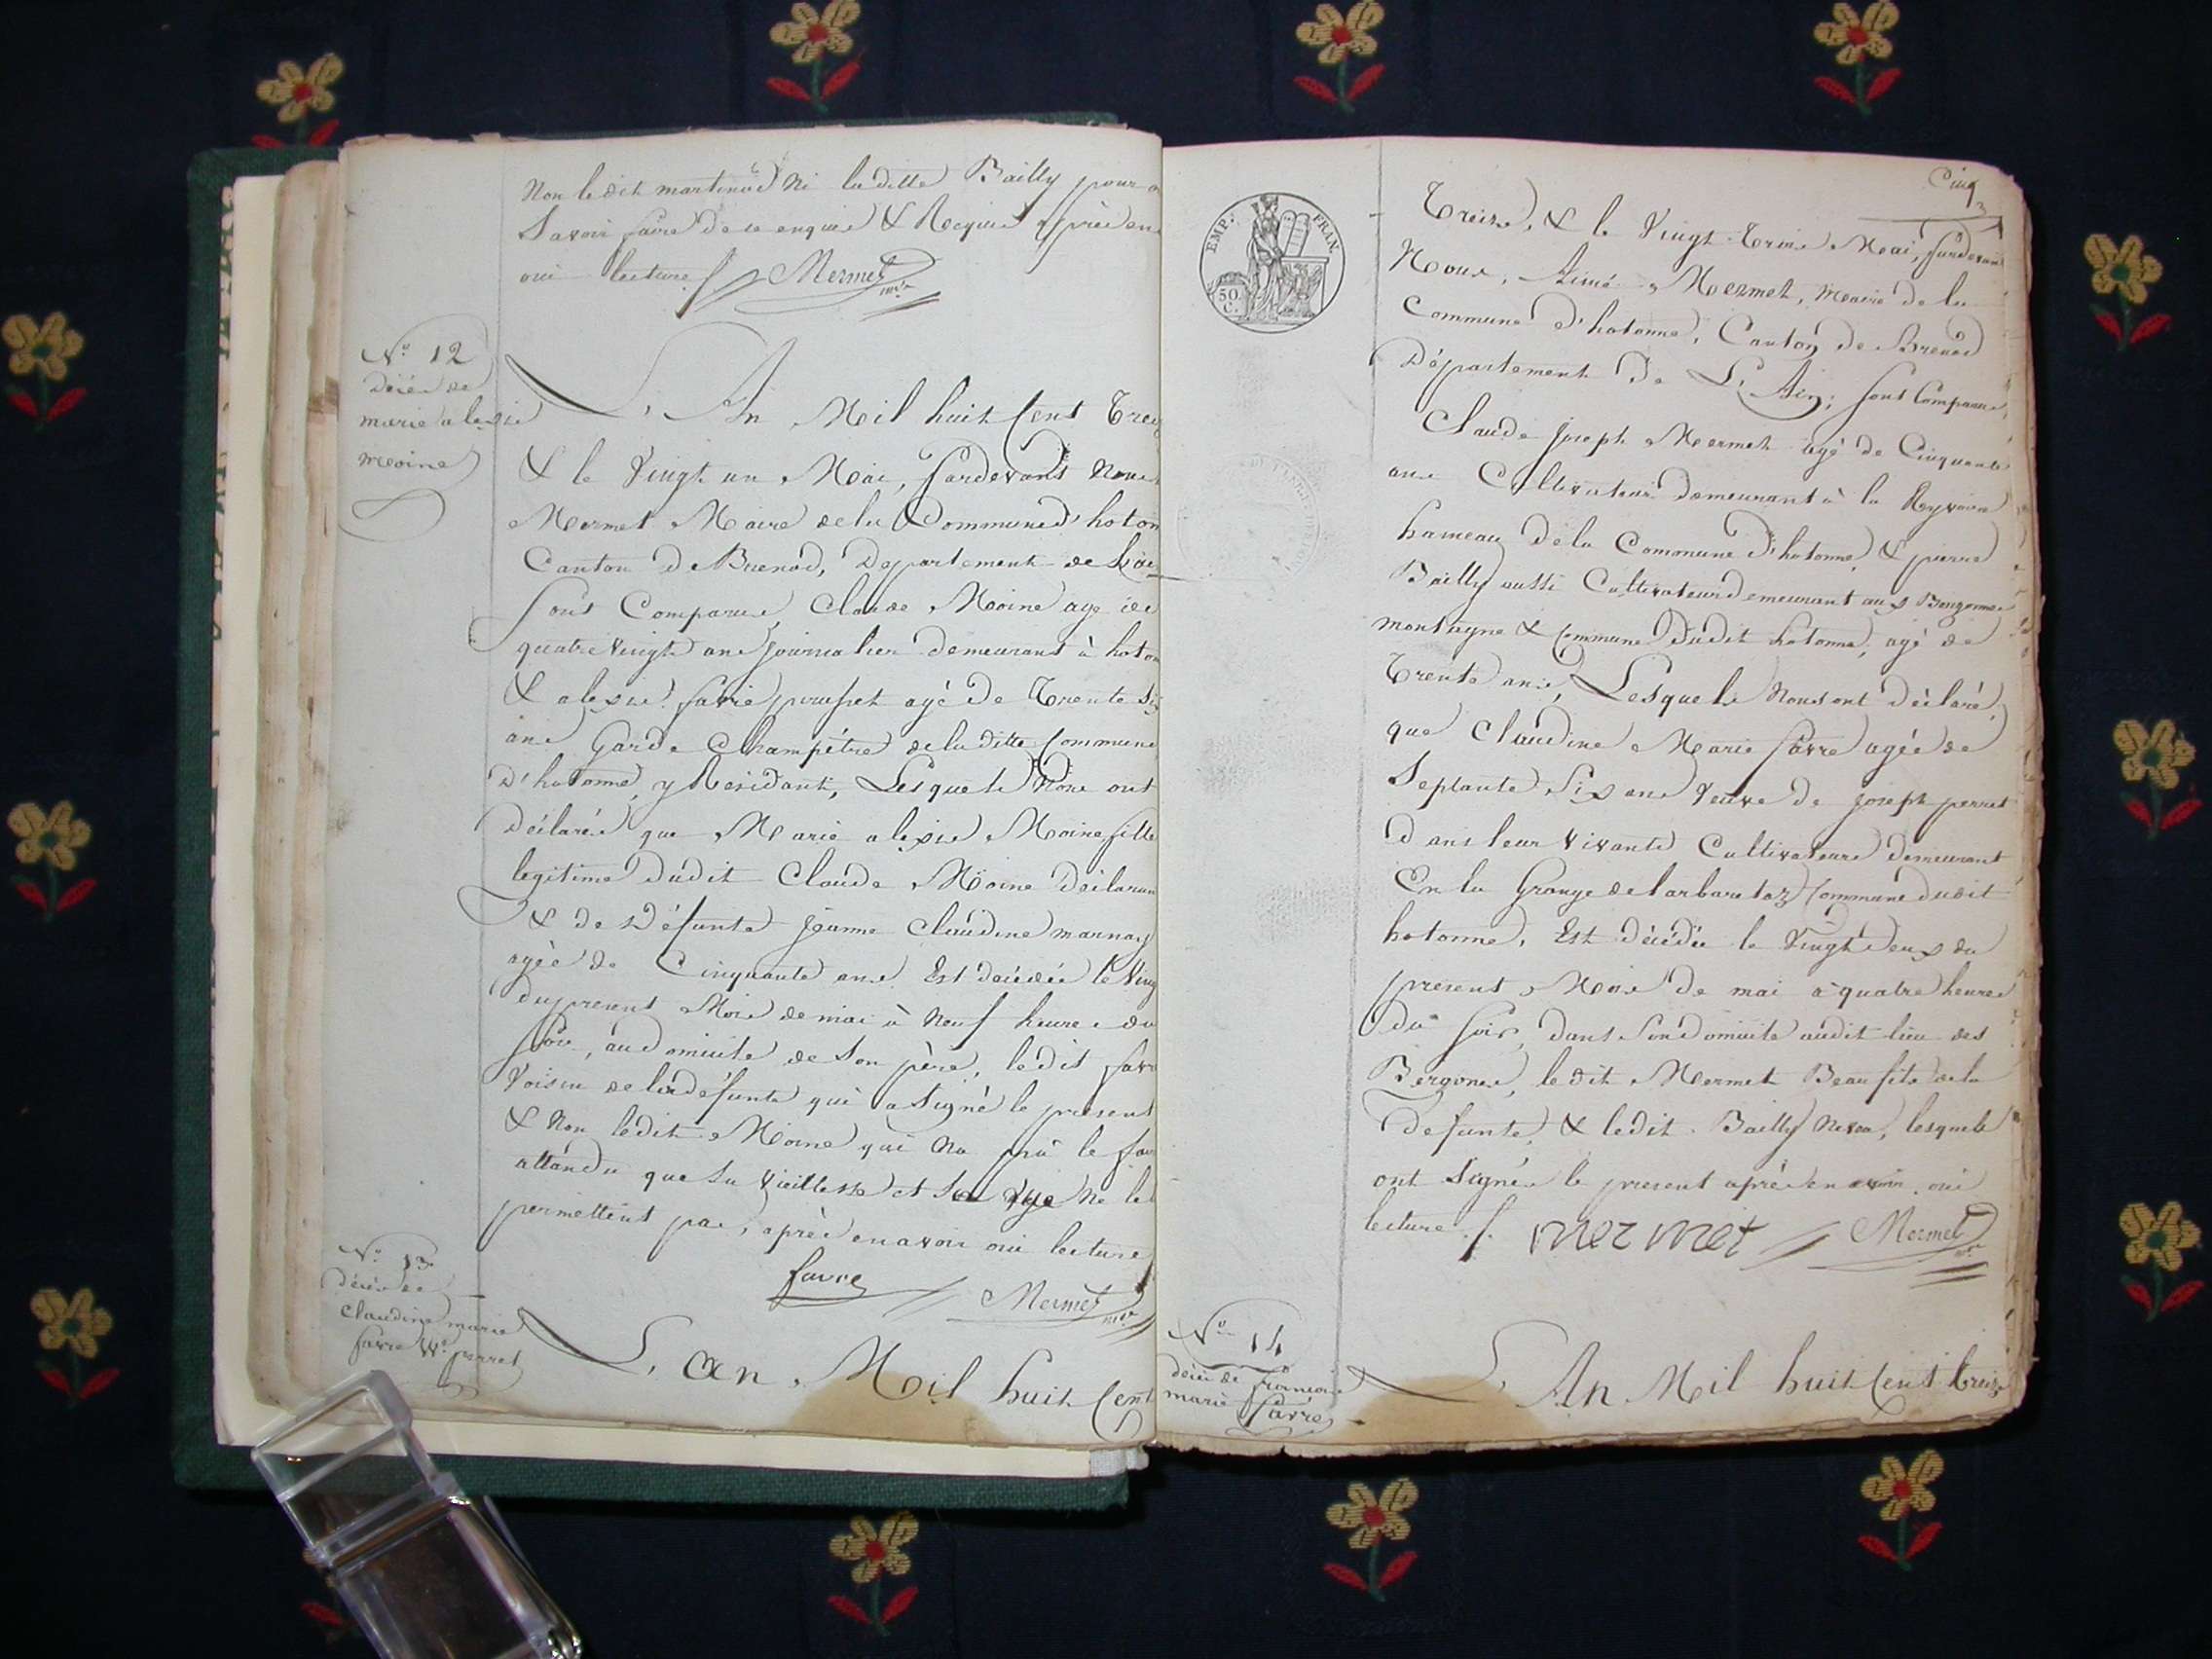 Non le dit martinod Ni la ditte Bailly pour
Savoir faire de ce enquis & Requis après en
oui lecture Mermet
N.º 12
Décès de
marie alexie
moine
L'An Mil huit Cent Trei
& le Vingt un Mai, Pardevant Nous
Mermet Maire de la Commune d'hoton
Canton de Brenod, Departement de L'ain
Sont Comparus, Claude Moine agé de
quatre vingt ans Journalier demeurant à hoton
& alexis favre agé de Trente Six
ans Garde Champétre de la ditte Commune
D'hotonne, y Residant, Lesquels Nous ont
Déclarés que Marie alexie Moine fille
legitime dudit Claude Moine Déclaran
& de Défunte Jeanne Claudine marnay
agée de Cinquante ans Est décédée le Ving
du present Mois de mai à Neuf heures du
Soir, au domicile de Son père, le dit favr
Voisin de la défunte qui a Signé le present
& Non le dit Moine qui Na pû le fair
attendu que Sa Vieillesse et Sa Vue Ne le
permettent pas, après en avoir oui lecture
favre Mermet
N.º 13
décès de
Claudine marie
favre Vve perret
L'an Mil huit Cent
Cinq
EMP. FRAN.
50 C.
Treize, & le Vingt Trois Mai, Pardevant
Nous, Aimé Mermet, Maire de la
Commune d'hotonne, Canton de Brenod
Département de L'Ain, Sont Comparus,
Claude Joseph Mermet agé de Cinquante
ans Cultivateur demeurant à la
hameau de la Commune d'hotonne, & pierre
Bailly aussi Cultivateur demeurant aux
montagne & Commune dudit hotonne, agé de
Trente ans, Lesquels Nous ont Déclaré,
que Claudine Marie favre agée de
Septante Six ans Veuve de Joseph perret
dans leur Vivante Cultivateurs demeurant
En la Grange de Commune dudit
hotonne, Est décédée le Vingt deux du
present Mois de mai à quatre heures
du Soir, dans Son domicile audit lieu des
Bergones, le dit Mermet Beau fils de la
defunte, & le dit Bailly Neveu, lesquels
ont Signés le present après en avoir oui
lecture. mermet Mermet
N.º 14
décès de francoise
marie favre
L'An Mil huit Cent treize